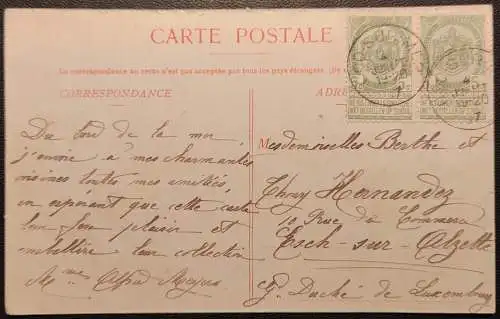 CARTE POSTALE
La correspondance au recto n'est pas acceptée par tous les pays étrangers.
CORRESPONDANCE
Du bord de la mer
j'envoie à mes charmantes
voisines toutes mes amitiés,
en espérant que cette carte
leur fera plaisir et
embellira leur collection
Mme Alfred Meyers
Mesdemoiselles Berthe et
Hernandez
10 Rue du Commerce
Esch-sur-Alzette
Gd Duché de Luxembourg